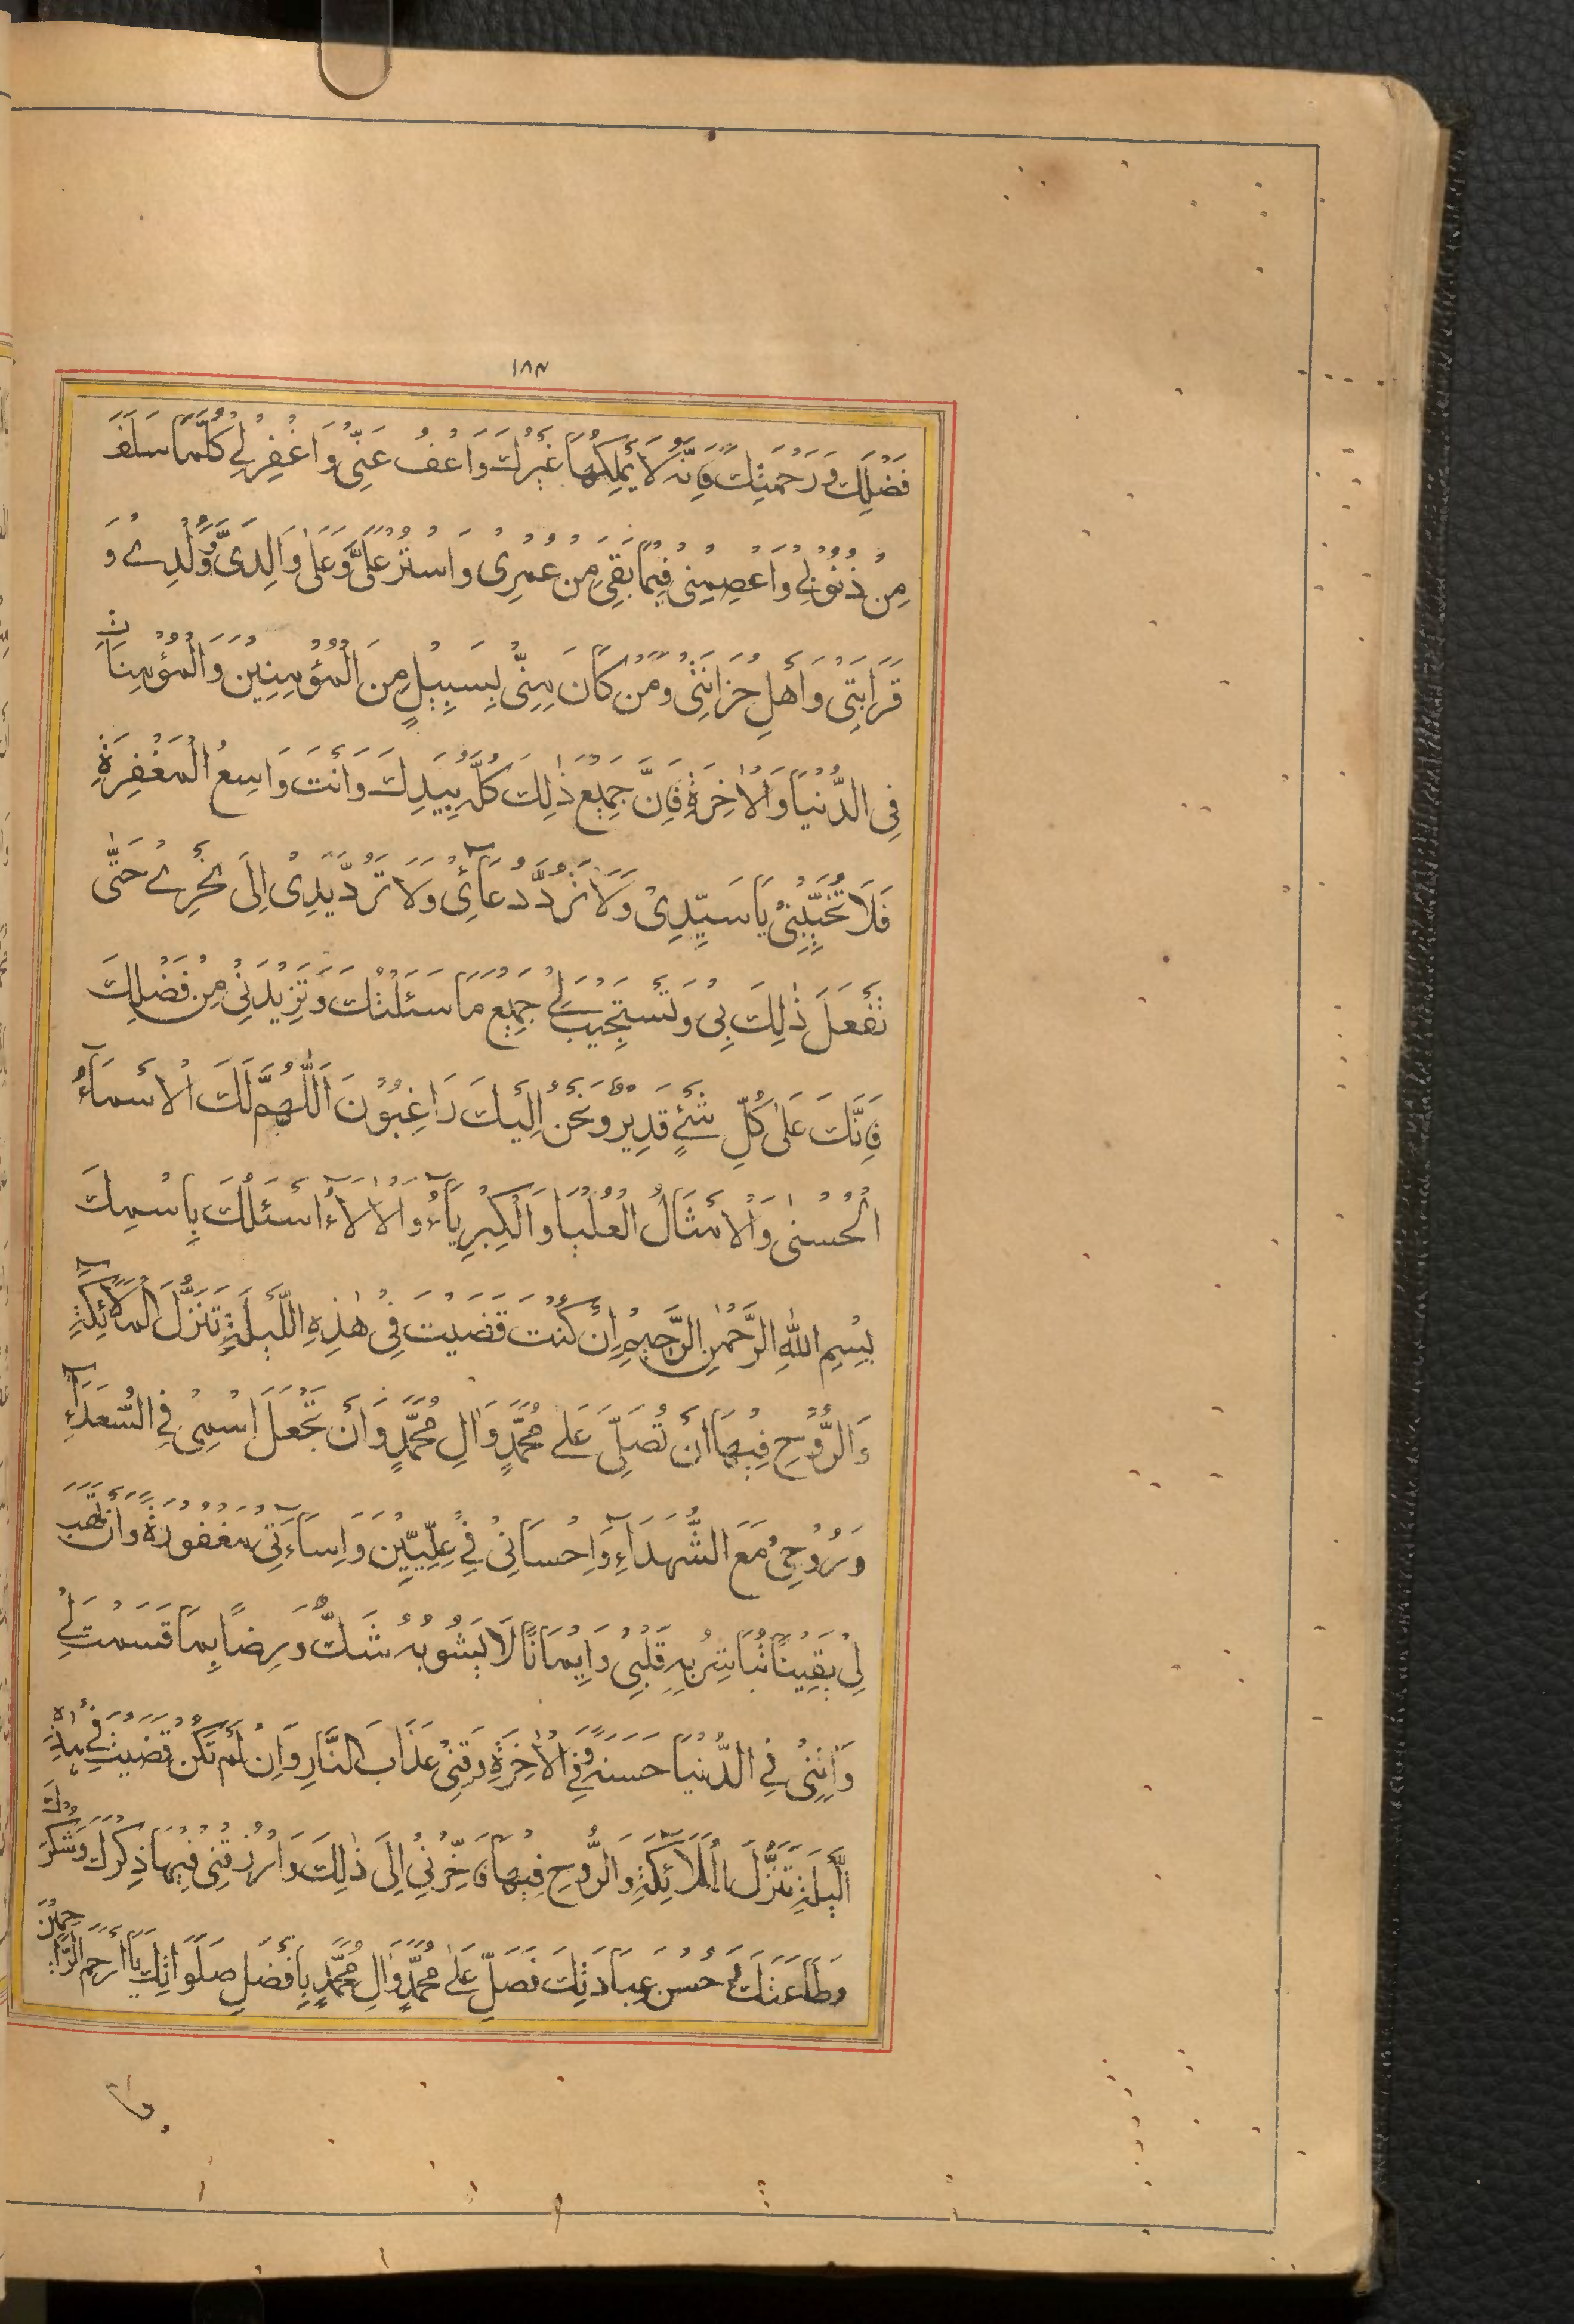 ١٨٣
فَضْلِكَ وَرَحْمَتِكَ فَاِنَّهُ لَا يَمْلِكُهَا غَيْرُكَ وَاعْفُ عَنِّي وَاغْفِرْ لِي كُلَّمَا سَلَفَ
مِنْ ذُنُوبِي وَاعْصِمْنِي فِيمَا بَقِيَ مِنْ عُمْرِي وَاسْتُرْ عَلَيَّ وَعَلَى وَالِدَيَّ وَوُلْدِي وَ
قَرَابَتِي وَأَهْلِ حُزَانَتِي وَمَنْ كَانَ مِنِّي بِسَبِيلٍ مِنَ الْمُؤْمِنِينَ وَالْمُؤْمِنَاتِ
فِي الدُّنْيَا وَالْاٰخِرَةِ فَاِنَّ جَمِيعَ ذٰلِكَ كُلَّهُ بِيَدِكَ وَأَنْتَ وَاسِعُ الْمَغْفِرَةِ
فَلَا تُخَيِّبْنِي يَا سَيِّدِي وَلَا تَرُدَّ دُعَآئِي وَلَا تَرُدَّ يَدِي اِلَى نَحْرِي حَتّٰى
تَفْعَلَ ذٰلِكَ بِي وَتَسْتَجِيبَ لِي جَمِيعَ مَا سَئَلْتُكَ وَتَزِيدَنِي مِنْ فَضْلِكَ
فَاِنَّكَ عَلٰى كُلِّ شَيْءٍ قَدِيرٌ وَنَحْنُ اِلَيْكَ رَاغِبُونَ اَللّٰهُمَّ لَكَ الْاَسْمَآءُ
الْحُسْنٰى وَالْاَمْثَالُ الْعُلْيَا وَالْكِبْرِيَآءُ وَالْاٰلَآءُ اَسْئَلُكَ بِاسْمِكَ
بِسْمِ اللّٰهِ الرَّحْمٰنِ الرَّحِيمِ اِنْ كُنْتَ قَضَيْتَ فِي هٰذِهِ اللَّيْلَةِ تَنَزُّلَ الْمَلَآئِكَةِ
وَالرُّوحِ فِيهَا اَنْ تُصَلِّيَ عَلٰى مُحَمَّدٍ وَاٰلِ مُحَمَّدٍ وَاَنْ تَجْعَلَ اسْمِي فِي السُّعَدَآءِ
وَرُوحِي مَعَ الشُّهَدَآءِ وَاِحْسَانِي فِي عِلِّيِّينَ وَاِسَآءَتِي مَغْفُورَةً وَاَنْ تَهَبَ
لِي يَقِينًا تُبَاشِرُ بِهِ قَلْبِي وَاِيمَانًا لَا يَشُوبُهُ شَكٌّ وَرِضًا بِمَا قَسَمْتَ لِي
وَاٰتِنِي فِي الدُّنْيَا حَسَنَةً وَفِي الْاٰخِرَةِ وَقِنِي عَذَابَ النَّارِ وَاِنْ لَمْ تَكُنْ قَضَيْتَ فِي هٰذِهِ
اللَّيْلَةِ تَنَزُّلَ الْمَلَآئِكَةِ وَالرُّوحِ فِيهَا فَاَخِّرْنِي اِلَى ذٰلِكَ وَارْزُقْنِي فِيهَا ذِكْرَكَ وَشُكْرَكَ
وَطَاعَتَكَ وَحُسْنَ عِبَادَتِكَ فَصَلِّ عَلٰى مُحَمَّدٍ وَاٰلِ مُحَمَّدٍ بِاَفْضَلِ صَلَوَاتِكَ يَا اَرْحَمَ الرَّاحِمِينَ